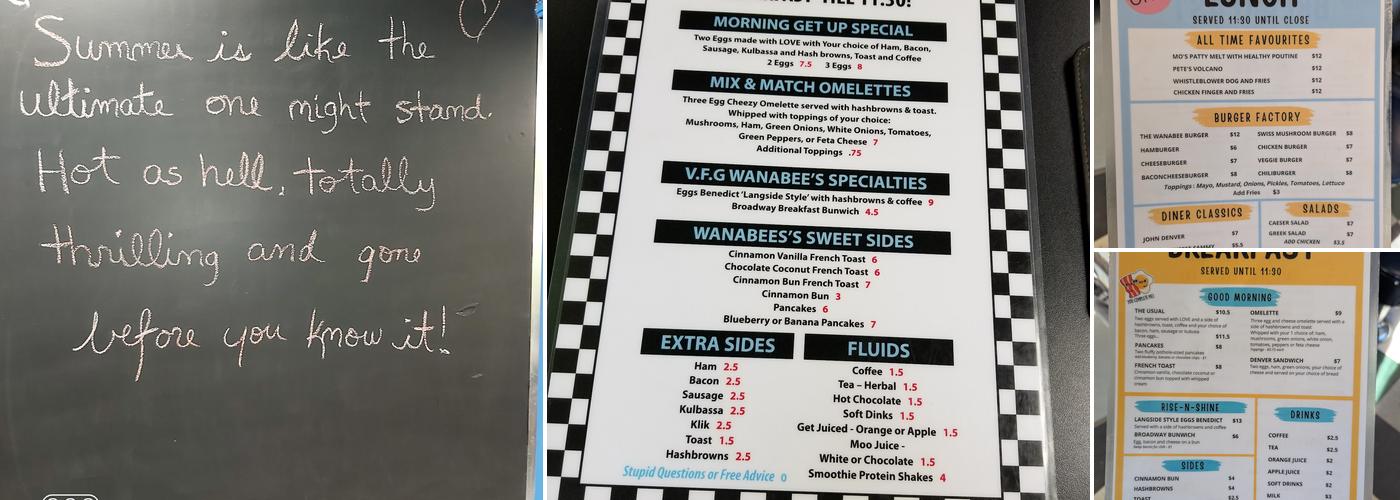 Summer is like the
ultimate one might stand.
Hot as hell, totally
thrilling and gone
before you know it!
TILL 11:30!
MORNING GET UP SPECIAL
Two Eggs made with LOVE with Your choice of Ham, Bacon,
Sausage, Kulbassa and Hash browns, Toast and Coffee
2 Eggs 7.5 3 Eggs 8
MIX & MATCH OMELETTES
Three Egg Cheezy Omelette served with hashbrowns & toast.
Whipped with toppings of your choice:
Mushrooms, Ham, Green Onions, White Onions, Tomatoes,
Green Peppers, or Feta Cheese 7
Additional Toppings .75
V.F.G WANABEE'S SPECIALTIES
Eggs Benedict 'Langside Style' with hashbrowns & coffee 9
Broadway Breakfast Bunwich 4.5
WANABEES'S SWEET SIDES
Cinnamon Vanilla French Toast 6
Chocolate Coconut French Toast 6
Cinnamon Bun French Toast 7
Cinnamon Bun 3
Pancakes 6
Blueberry or Banana Pancakes 7
EXTRA SIDES
Ham 2.5
Bacon 2.5
Sausage 2.5
Kulbassa 2.5
Klik 2.5
Toast 1.5
Hashbrowns 2.5
Stupid Questions or Free Advice 0
FLUIDS
Coffee 1.5
Tea – Herbal 1.5
Hot Chocolate 1.5
Soft Dinks 1.5
Get Juiced - Orange or Apple 1.5
Moo Juice -
White or Chocolate 1.5
Smoothie Protein Shakes 4
LUNCH
SERVED 11:30 UNTIL CLOSE
ALL TIME FAVOURITES
MO'S PATTY MELT WITH HEALTHY POUTINE $12
PETE'S VOLCANO $12
WHISTLEBLOWER DOG AND FRIES $12
CHICKEN FINGER AND FRIES $12
BURGER FACTORY
THE WANABEE BURGER $12
HAMBURGER $6
CHEESEBURGER $7
BACONCHEESEBURGER $8
SWISS MUSHROOM BURGER $8
CHICKEN BURGER $7
VEGGIE BURGER $7
CHILIBURGER $8
Toppings : Mayo, Mustard, Onions, Pickles, Tomatoes, Lettuce
Add Fries $3
DINER CLASSICS
JOHN DENVER $7
SAMMY $5.5
SALADS
CAESER SALAD $7
GREEK SALAD $7
ADD CHICKEN $3.5
BREAKFAST
SERVED UNTIL 11:30
GOOD MORNING
THE USUAL $10.5
Two eggs served with LOVE and a side of
hashbrowns, toast, coffee and your choice of
bacon, ham, sausage or kubasa
Three eggs... $11.5
PANCAKES $8
Two fluffy pothole-sized pancakes
FRENCH TOAST $8
Cinnamon vanilla, chocolate coconut or
cinnamon bun topped with whipped
cream
OMELETTE $9
Three egg and cheese omelette served with a
side of hashbrowns and toast
Whipped with your 1 choice of: ham,
mushrooms, green onions, white onion,
tomatoes, peppers or feta cheese
DENVER SANDWICH $7
Two eggs, ham, green onions, your choice of
cheese and served on your choice of bread
RISE-N-SHINE
LANGSIDE STYLE EGGS BENEDICT $13
Served with a side of hashbrowns and coffee
BROADWAY BUNWICH $6
Egg, bacon and cheese on a bun
SIDES
CINNAMON BUN $4
HASHBROWNS $4
TOAST $2.5
DRINKS
COFFEE $2.5
TEA $2.5
ORANGE JUICE $2
APPLE JUICE $2
SOFT DRINKS $2
MILK